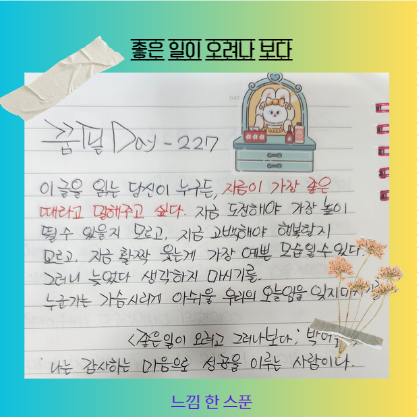 좋은 일이 오려나 보다
꿈필 Day - 227
이 글을 읽는 당신이 누구든, 지금이 가장 좋은
때라고 말해주고 싶다. 지금 도전해야 가장 높이
뛸 수 있을지 모르고, 지금 고백해야 행복할지
모르고, 지금 활짝 웃는게 가장 예쁜 모습일 수 있다.
그러니 늦었다 생각하지 마시기를.
누군가는 가슴시리게 아쉬울 우리의 오늘임을 잊지마시기를
<좋은 일이 오려고 그러나보다; 박여름
나는 감사하는 마음으로 성공을 이루는 사람이다.
느낌 한 스푼